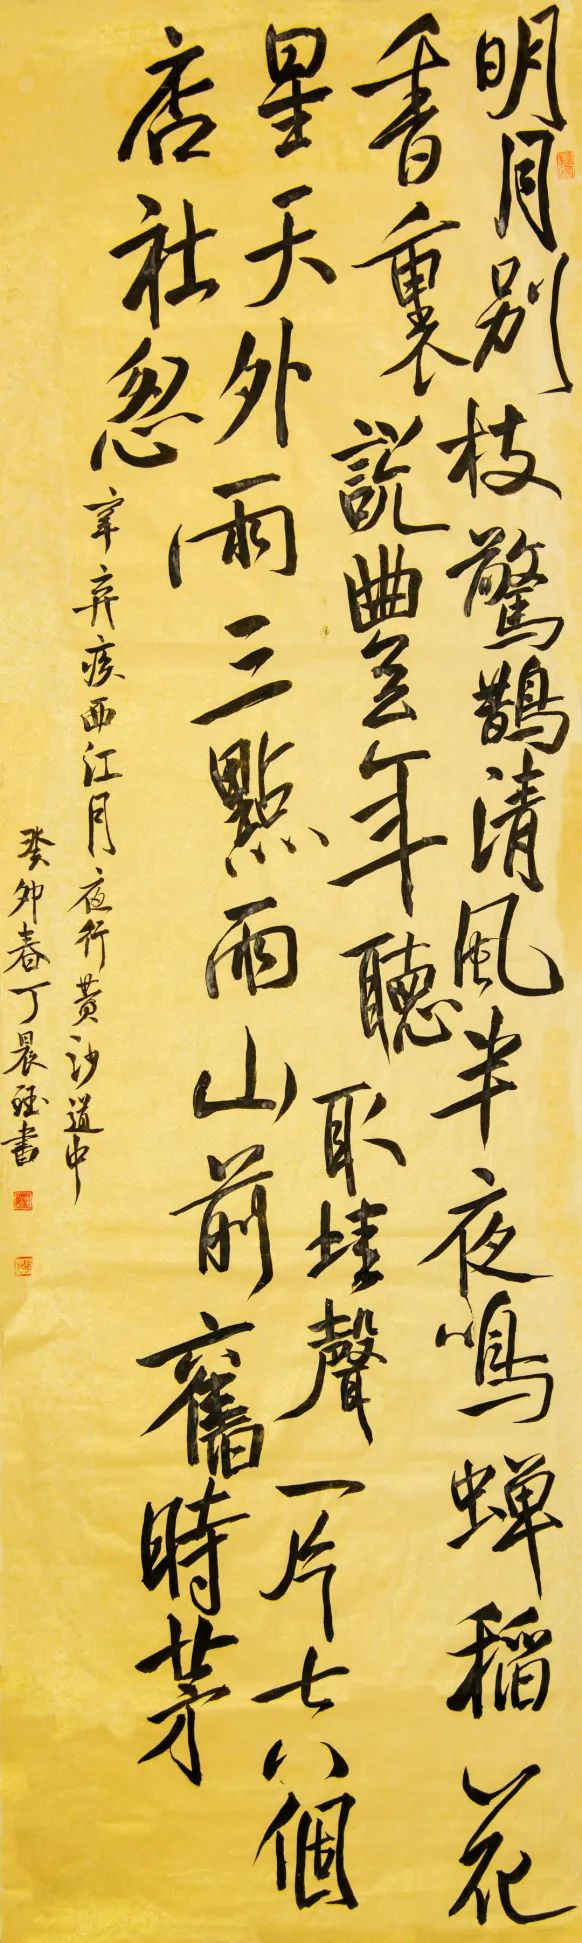 明月别枝驚鵲清風半夜鳴蝉稻花
香裏説豐年聽取蛙聲一片七八個
星天外兩三點雨山前舊時茅
店社忽
辛弃疾西江月夜行黄沙道中
癸卯春丁晨書